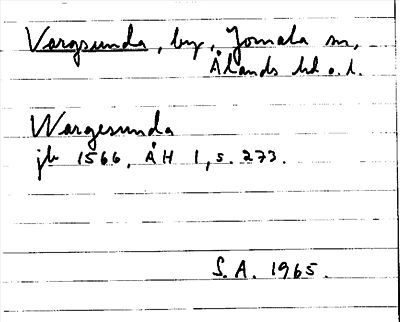 Vargsunda, by, Jomala sn,
Ålands hd o. l.
Wargesunda
jb 1566, ÅH 1, s. 273.
S. A. 1965.